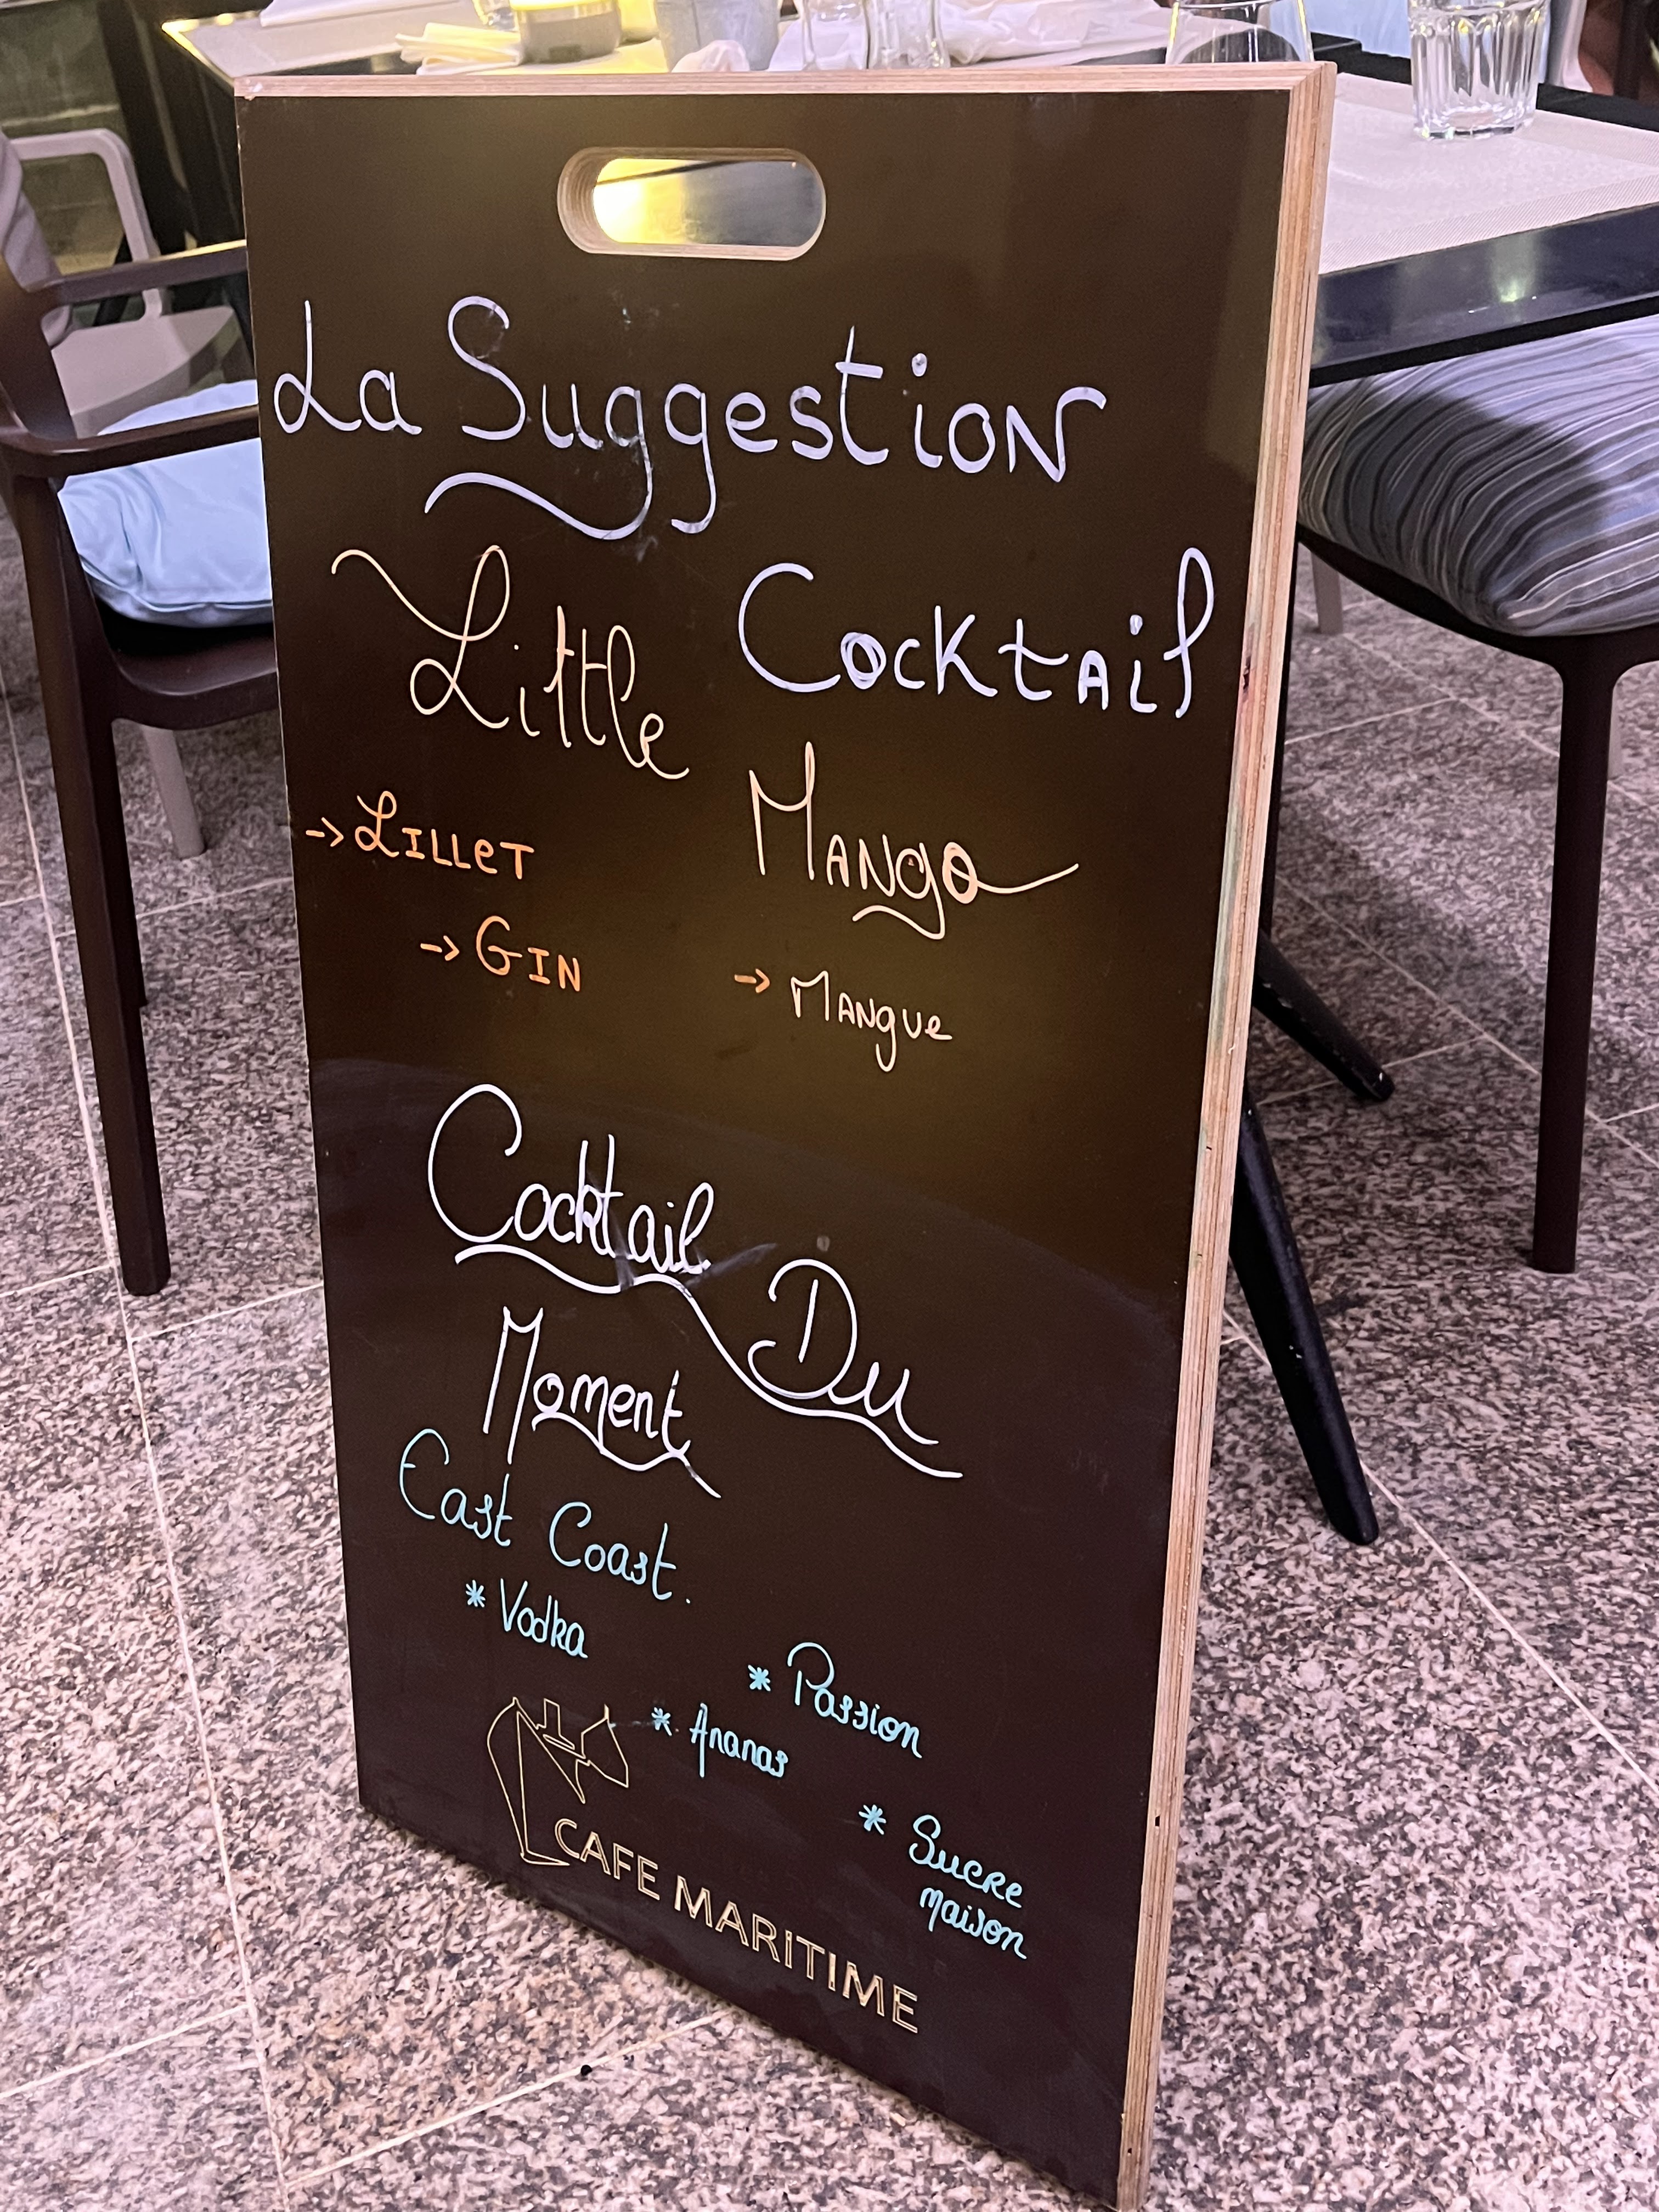 La Suggestion
Cocktail
Little
Mango
-> Lillet
-> Gin
-> Mangue
Cocktail Du
Moment
East Coast.
* Vodka
* Passion
* Ananas
* Sucre
maison
CAFE MARITIME